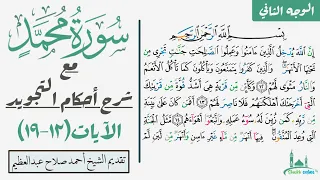 الوجه الثاني
سُورَةُ مُحَمَّدٍ
مع
شرح أحكام التجويد
الآيات (١٢-١٩)
تقديم الشيخ أحمد صلاح عبدالعظيم
بِسْمِ اللَّهِ الرَّحْمَٰنِ الرَّحِيمِ
إِنَّ اللَّهَ يُدْخِلُ الَّذِينَ آمَنُوا وَعَمِلُوا الصَّالِحَاتِ جَنَّاتٍ تَجْرِي مِن
تَحْتِهَا الْأَنْهَارُ وَالَّذِينَ كَفَرُوا يَتَمَتَّعُونَ وَيَأْكُلُونَ كَمَا تَأْكُلُ الْأَنْعَامُ
وَالنَّارُ مَثْوًى لَّهُمْ ١٢ وَكَأَيِّن مِّن قَرْيَةٍ هِيَ أَشَدُّ قُوَّةً مِّن قَرْيَتِكَ
الَّتِي أَخْرَجَتْكَ أَهْلَكْنَاهُمْ فَلَا نَاصِرَ لَهُمْ ١٣ أَفَمَن كَانَ عَلَىٰ بَيِّنَةٍ
مِّن رَّبِّهِ كَمَن زُيِّنَ لَهُ سُوءُ عَمَلِهِ وَاتَّبَعُوا أَهْوَاءَهُم ١٤ مَّثَلُ الْجَنَّةِ
الَّتِي وُعِدَ الْمُتَّقُونَ فِيهَا أَنْهَارٌ مِّن مَّاءٍ غَيْرِ آسِنٍ وَأَنْهَارٌ مِّن لَّبَنٍ لَّمْ